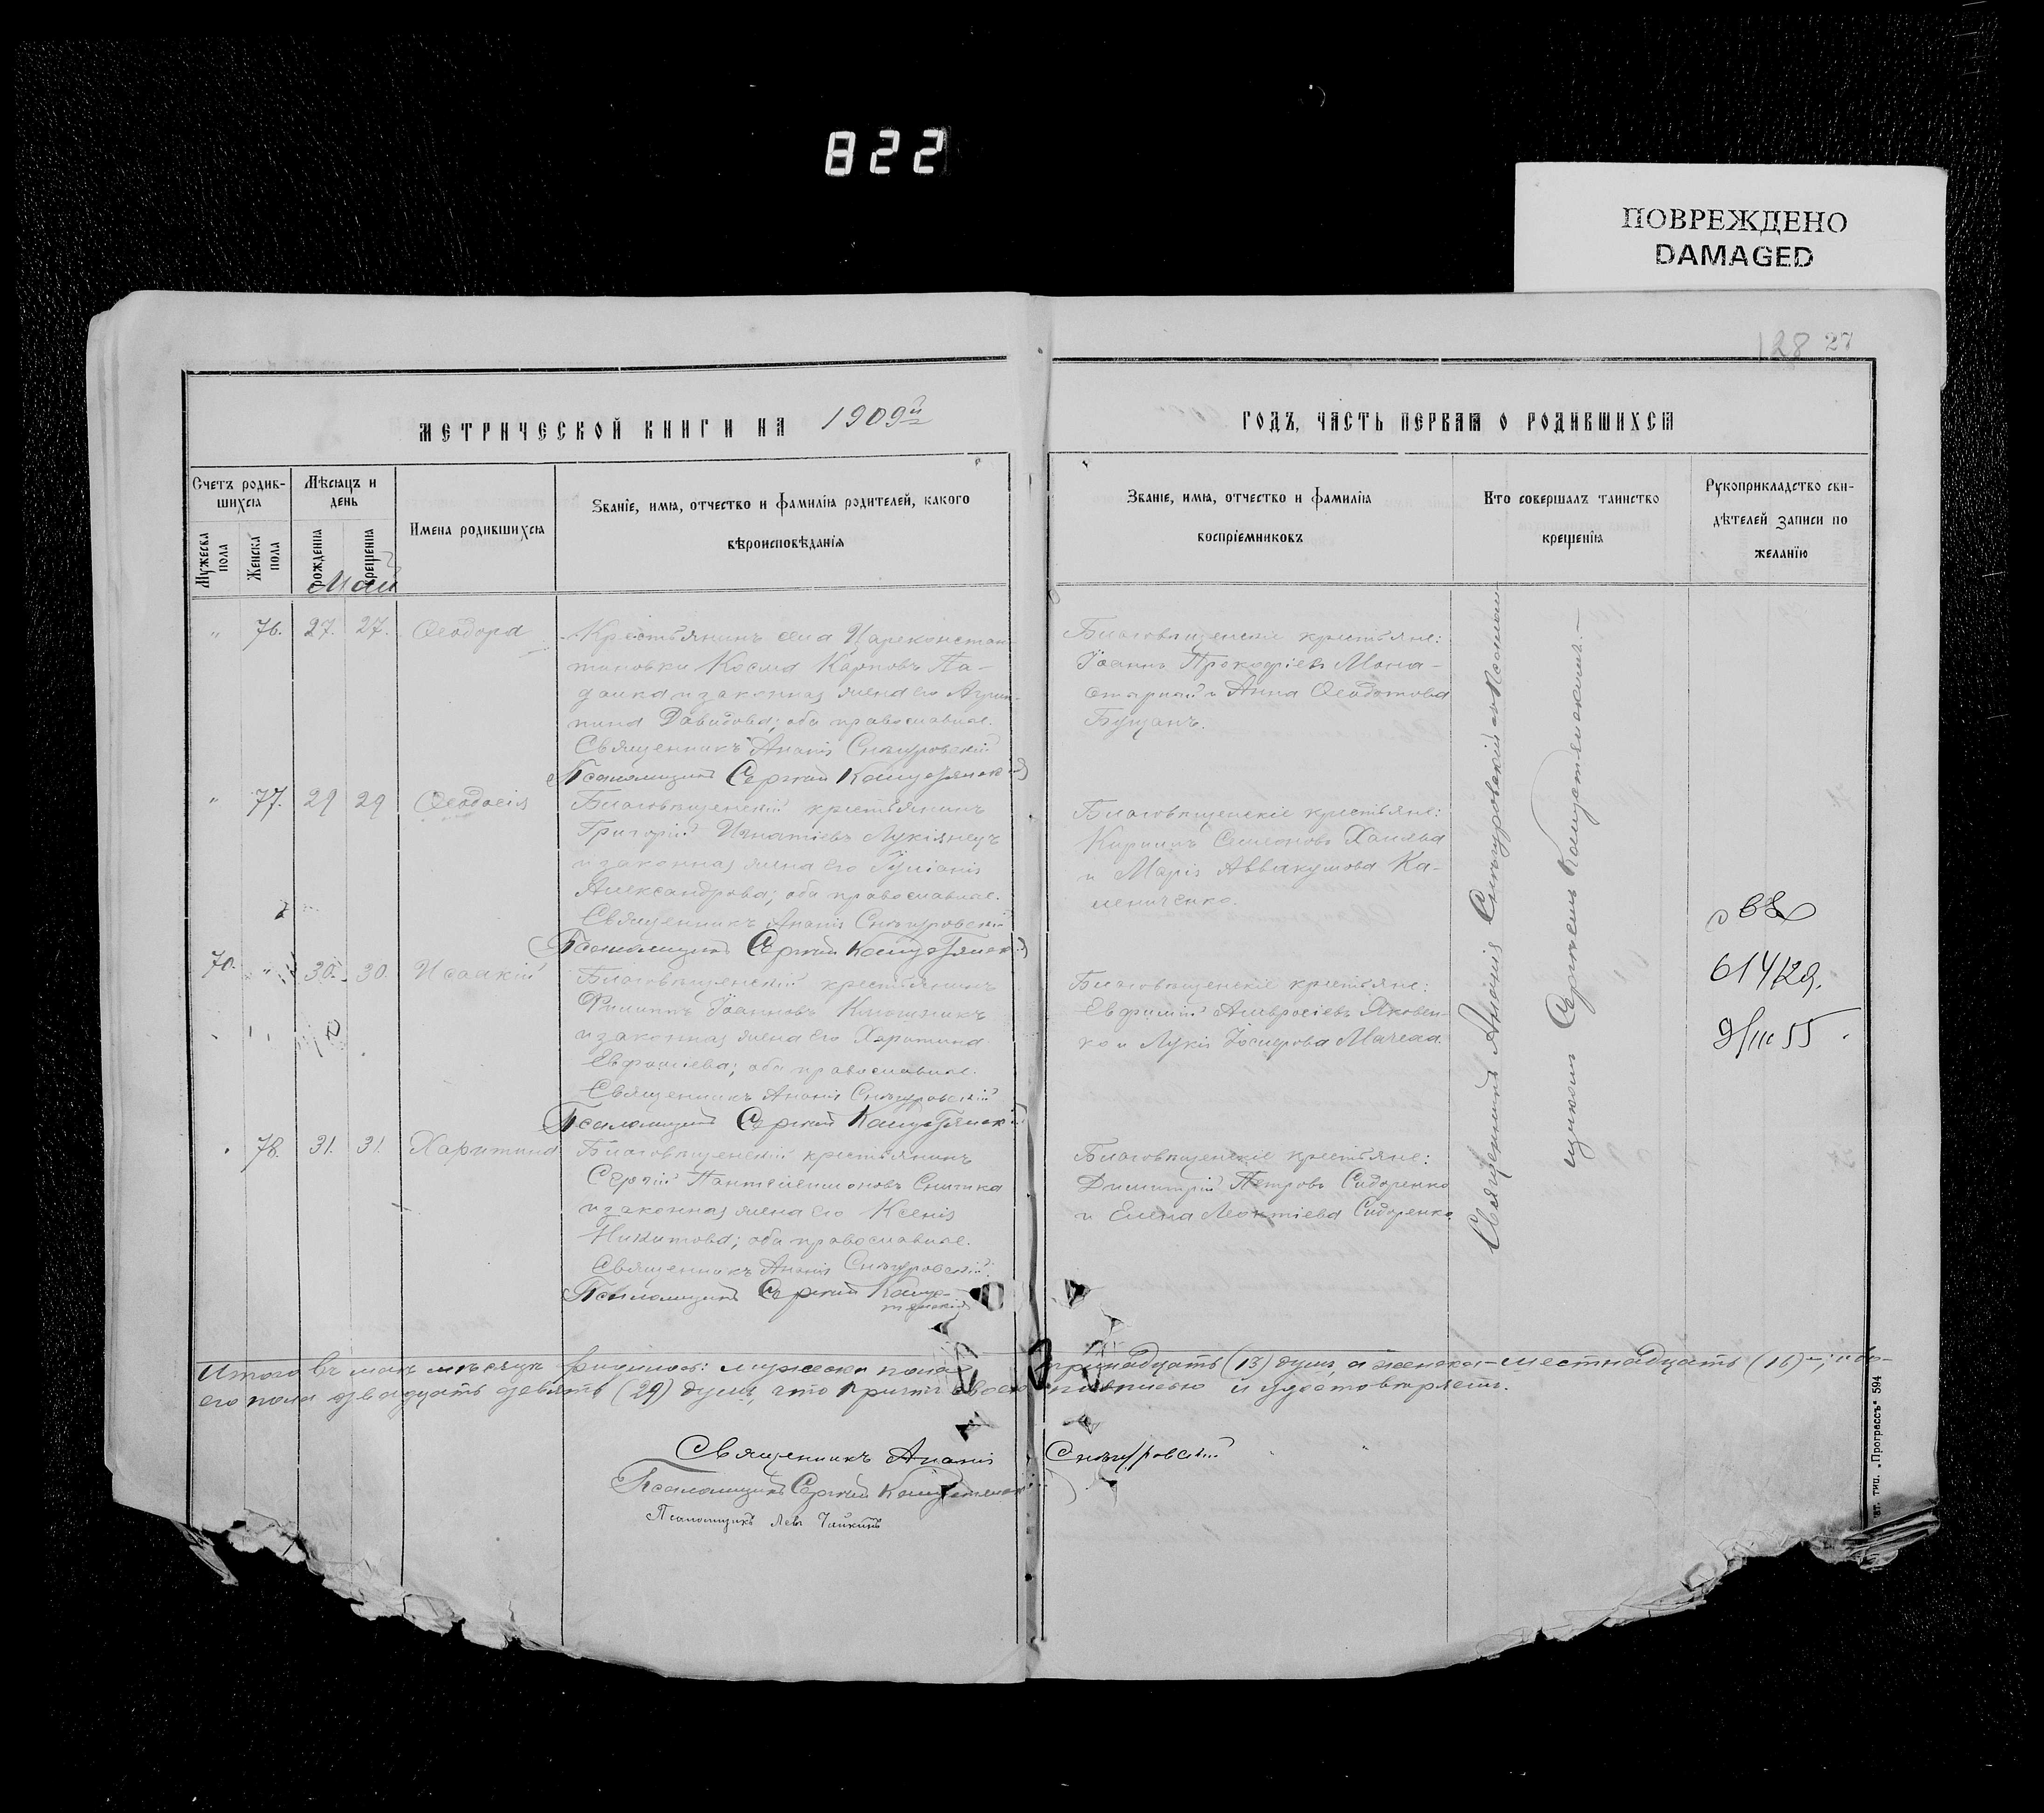 822
ПОВРЕЖДЕНО
DAMAGED
128 27
МЕТРИЧЕСКОЙ КНИГИ НА 1909й
ГОДЪ, ЧАСТЬ ПЕРВАЯ О РОДИВШИХСЯ
Счетъ родив-
шихся
Мужеска пола
Женска пола
Мѣсяцъ и
день
рожденія
крещенія
Имена родившихся
Званіе, имя, отчество и фамилія родителей, какого
вѣроисповѣданія
Званіе, имя, отчество и фамилія
воспріемниковъ
Кто совершалъ таинство
крещенія
Рукоприкладство сви-
дѣтелей записи по
желанію
Май
" 76. 27. 27. Ѳеодора
Крестьянинъ села Цареконстан-
тиновки Косма Карповъ Па-
далка и законная жена его Агрип-
пина Давидова; оба православные.
Священникъ Ананія Снѣгуровскій
Псаломщикъ Сергій
Благовѣщенскіе крестьяне:
Іоаннъ Прокофіевъ Мона-
стырный и Анна Ѳеодотова
Буцанъ.
" 77. 29 29 Ѳеодосія
Благовѣщенскій крестьянинъ
Григорій Игнатіевъ Лукіянецъ
и законная жена его Іуліанія
Александрова; оба православные.
Священникъ Ананія Снѣгуровскій
Псаломщикъ Сергій
Благовѣщенскіе крестьяне:
Кириллъ Симеоновъ Халява
и Марія Аввакумова Ка-
лениченко.
70. " 30. 30. Исаакій
Благовѣщенскій крестьянинъ
Филиппъ Іоанновъ
и законная жена его Харитина
Евфиміева; оба православные.
Священникъ Ананія Снѣгуровскій
Псаломщикъ Сергій
Благовѣщенскіе крестьяне:
Евфимій Амвросіевъ Яковен-
ко и Лукія Іосифова
614/29.
9/III 55
78. 31. 31. Харитина
Благовѣщенскій крестьянинъ
Сергій Пантелеимоновъ
и законная жена его Ксенія
Никитова; оба православные.
Священникъ Ананія Снѣгуровскій
Псаломщикъ Сергій
Благовѣщенскіе крестьяне:
Димитрій Петровъ Сидоренко
и Елена Леонтіева Сидоренко.
Священникъ Ананія Снѣгуровскій съ псалом-
щикомъ Сергіемъ
Итого въ маѣ мѣсяцѣ родилось: мужеска пола тринадцать (13) душъ, а женска - шестнадцать (16) -; обо-
его пола двадцать девять (29) душъ, что причтъ своею подписью и удостовѣряетъ.
Священникъ Ананія Снѣгуровскій
Псаломщикъ Сергій
Псаломщикъ Левъ Чайкинъ
ат. тип. „Прогрессъ" 594